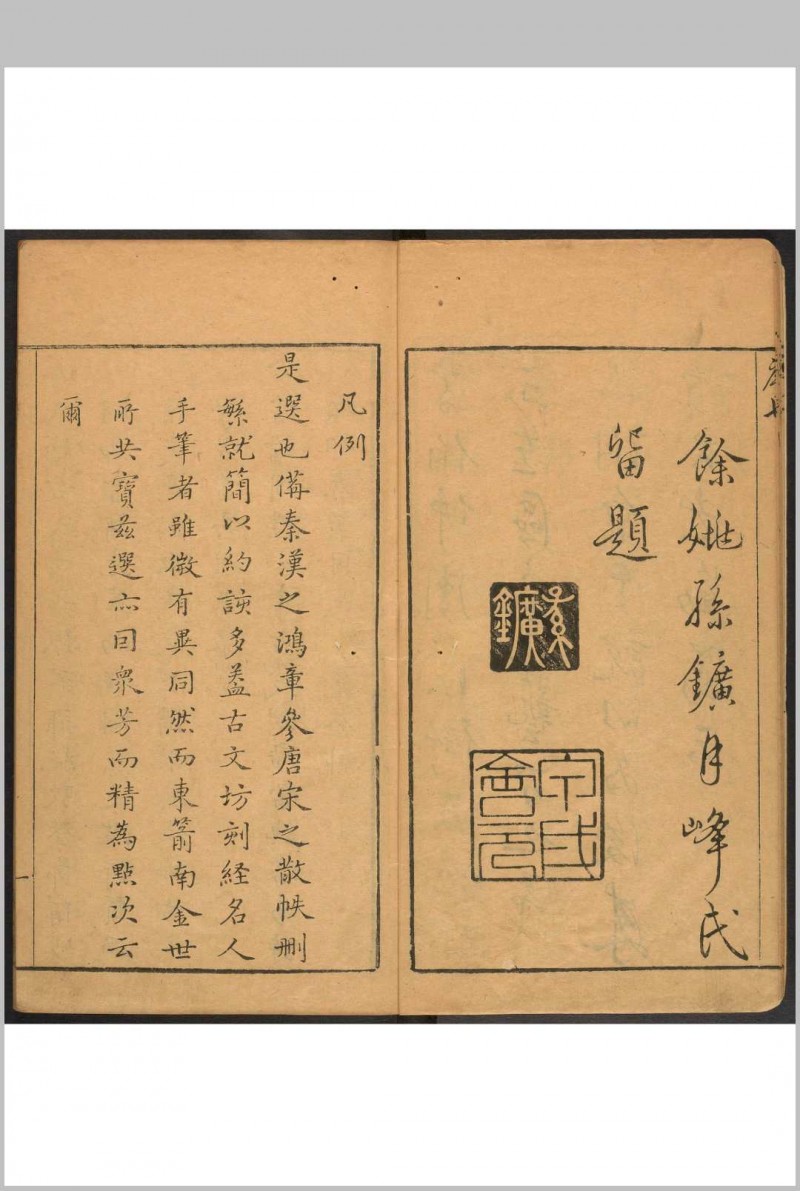 餘姚孫鑛月峰氏
留題
孫鑛
會元
凡例
是選也備秦漢之鴻章參唐宋之散帙刪
繁就簡以約該多葢古文坊刻経名人
手筆者雖微有異同然而東箭南金世
所共寶兹選亦因衆芳而精為點次云
爾